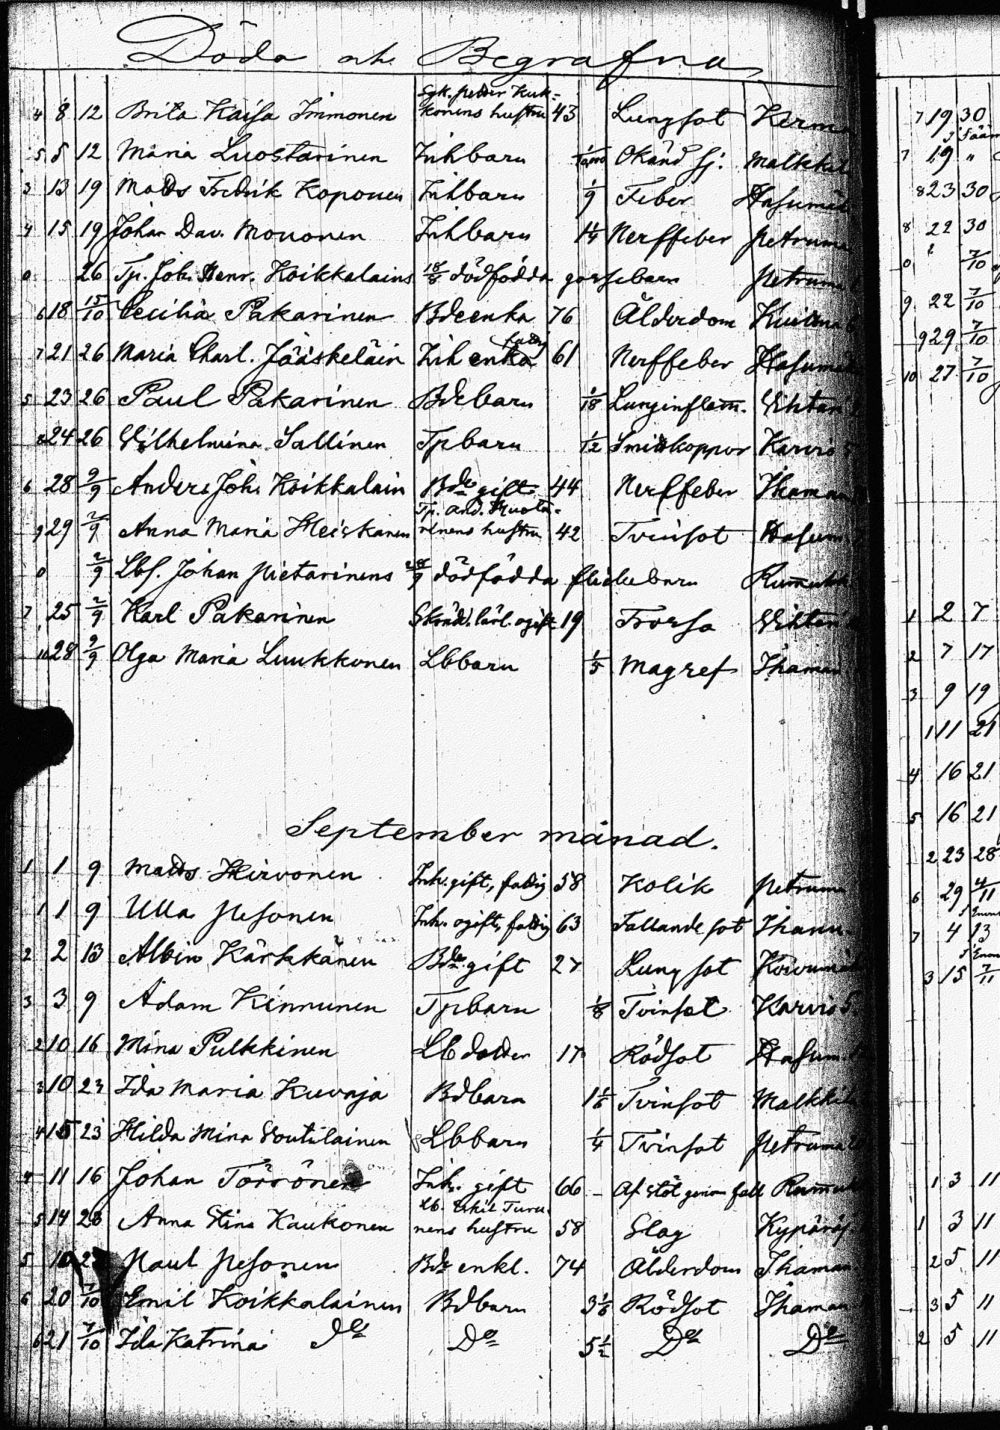 Döda och Begrafna
Sgk. petter Kuk-
4 8 12 Brita Kaisa Immonen konens hustru 43 Lungsot Kerma
5 8 12 Maria Luostarinen Inhbarn Okänd sj: Malkkil
3 13 19 Mats Fredrik Koponen Inhbarn 1/9 Feber Hasumä
4 15 19 Johan Dav. Mononen Inhbarn 1 1/4 Nerffeber petruma
0 26 Tp. Joh. Henr. Koikkalains 18/8 dödfödda gossebarn petruma
6 18 15/10 Cecilia Pakarinen Bdeenka 76 Ålderdom
fattig
7 21 26 Maria Charl. Jääskeläin Inh enka 61 Nerffeber Hasumä
5 23 26 Paul Pakarinen Bdebarn 1/18 Lunginflam. Vihtari
8 24 26 Wilhelmina Sallinen Tpbarn 1/12 Smittkoppor Karvio 5
6 28 9/9 Anders Joh. Koikkalain Bde gift 44 Nerffeber Ihaman
Tp. And. Kuosta-
9 29 2/9 Anna Maria Heiskanen rinens hustru 42 Tvinsot Hasum
0 2/9 Lbs. Johan pietarinens 28/9 dödfödda flickebarn Rummuk
7 25 2/9 Karl Pakarinen Skrädd. lärl. ogift 19 Trossa Vihtari
10 28 2/9 Olga Maria Luukkonen Lbbarn 1/5 Magref Ihaman
September månad.
1 1 9 Mats Hirvonen Inh. gift, fattig 58 Kolik petruma
1 1 9 Ulla pesonen Inh. ogift, fattig 63 Fallandesot Ihama
2 2 13 Albin Kärkkänen Bde gift 27 Lungsot Koivumä
3 3 9 Adam Kinnunen Tpbarn 1/8 Tvinsot Karvio 5
2 10 16 Mina Pulkkinen Lb dotter 17 Rödsot Hasum
3 10 23 Ida Maria Kuvaja Bdbarn 1 1/6 Tvinsot Malkkil
4 15 23 Hilda Mina Voutilainen Lbbarn 1/4 Tvinsot petruma
4 11 16 Johan Törrönen Inh. gift 66 - Af stöt genom fall Rummuk
Lb. Erkil Turu-
5 14 28 Anna Stina Kaukonen nens hustru 58 Slag Kypäräj
5 10 23 Paul pesonen Bde enkl. 74 Ålderdom Ihaman
6 20 7/10 Emil Koikkalainen Bdbarn 3 1/6 Rödsot Ihaman
6 21 7/10 Ida Katrina Do Do 5 1/2 Do Do
7 19 30
7 19 "
8 23 30
8 22 30
0 7/10
9 22 7/10
9 29 7/10
10 27 7/10
1 2 7
2 7 17
3 9 19
1 11 21
4 16 21
5 16 21
2 23 28
6 29 4/11
7 4 13
3 15 7/11
1 3 11
1 3 11
2 5 11
3 5 11
2 5 11